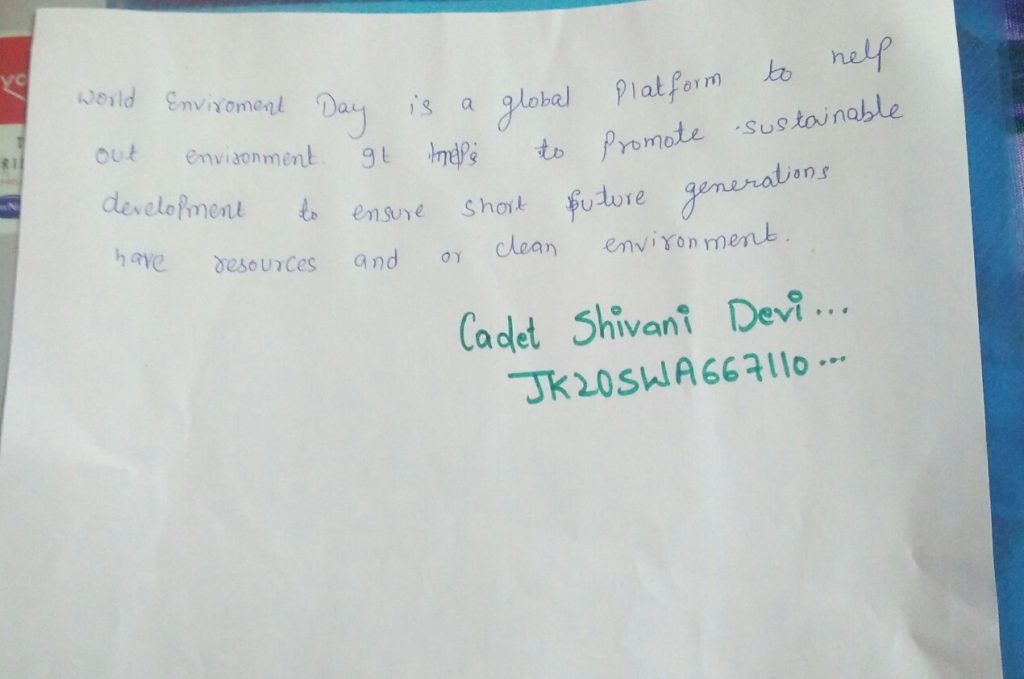 World Enviroment Day is a global Platform to help
out environment. It helps to Promote sustainable
development to ensure short future generations
have resources and or clean environment.
Cadet Shivani Devi...
JK20SWA667110...